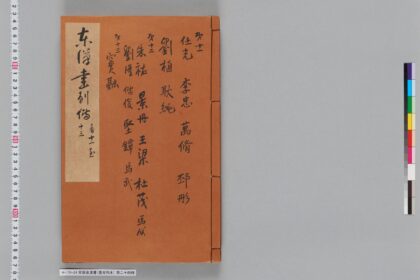 卷十一
任光 李忠 萬脩 邳彤
劉植 耿純
卷十二
朱祐 景丹 王梁 杜茂 馬成
劉隆 傅俊 堅鐔 馬武
卷十三
竇融
東漢書列傳 卷十一至
十三